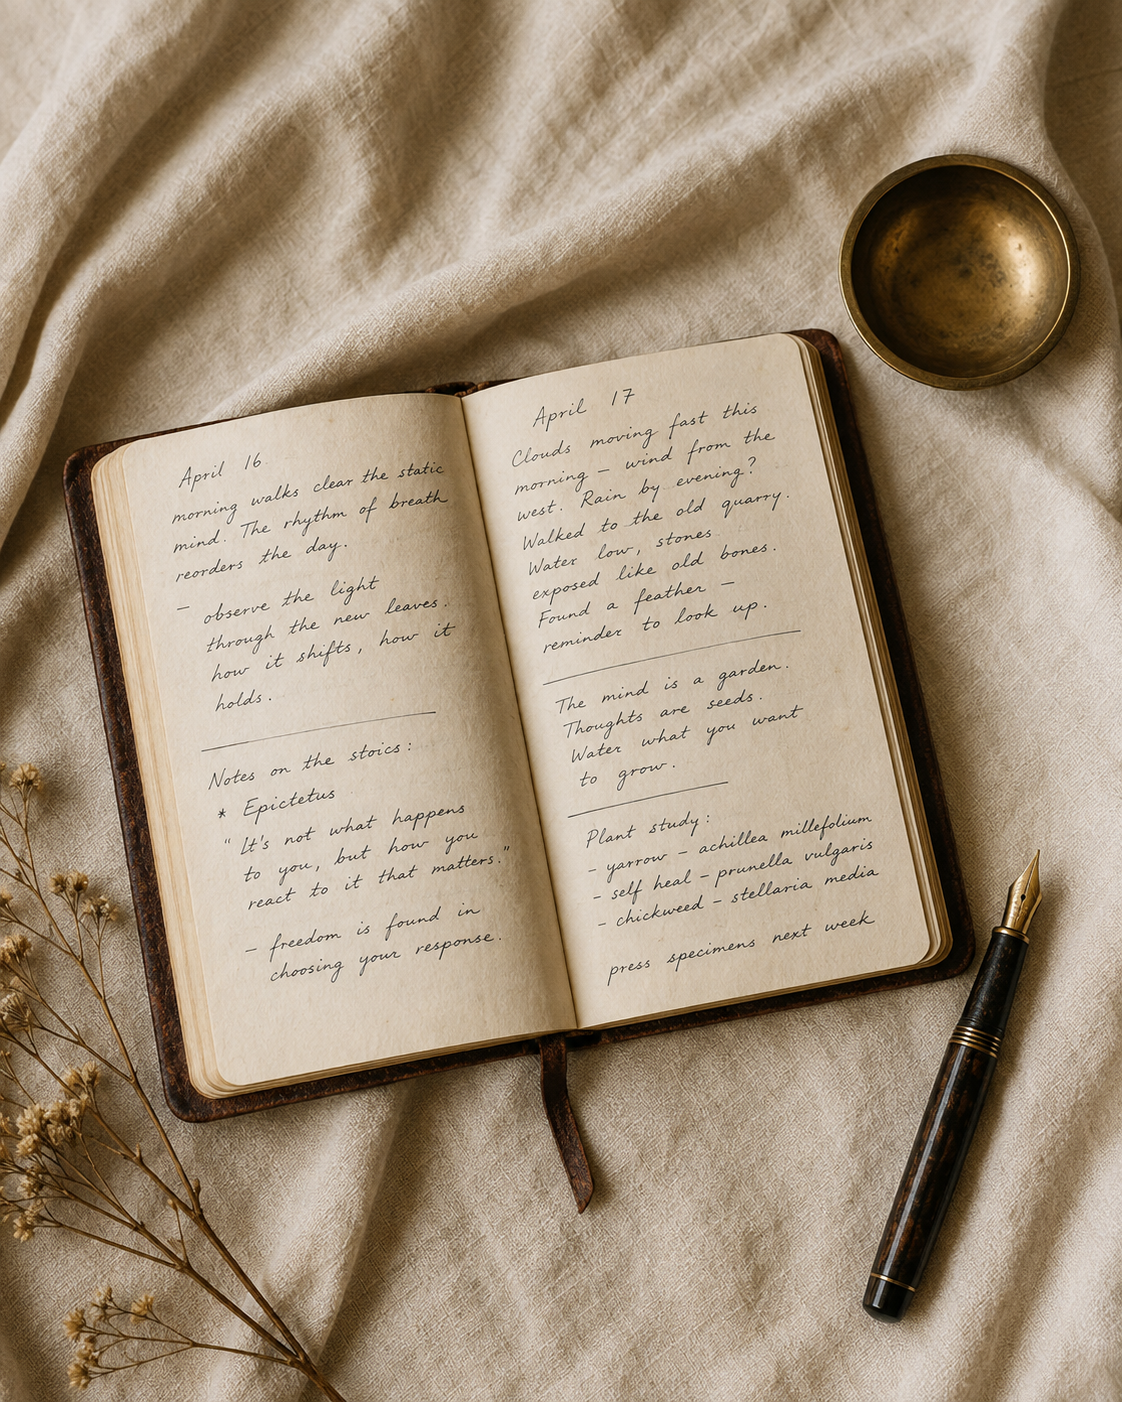 April 16
morning walks clear the static
mind. The rhythm of breath
reorders the day.
– observe the light
through the new leaves.
how it shifts, how it
holds.
Notes on the stoics:
* Epictetus
"It's not what happens
to you, but how you
react to it that matters."
– freedom is found in
choosing your response.
April 17
Clouds moving fast this
morning – wind from the
west. Rain by evening?
Walked to the old quarry.
Water low, stones
exposed like old bones.
Found a feather –
reminder to look up.
The mind is a garden.
Thoughts are seeds.
Water what you want
to grow.
Plant study:
- yarrow – achillea millefolium
- self heal – prunella vulgaris
- chickweed – stellaria media
press specimens next week